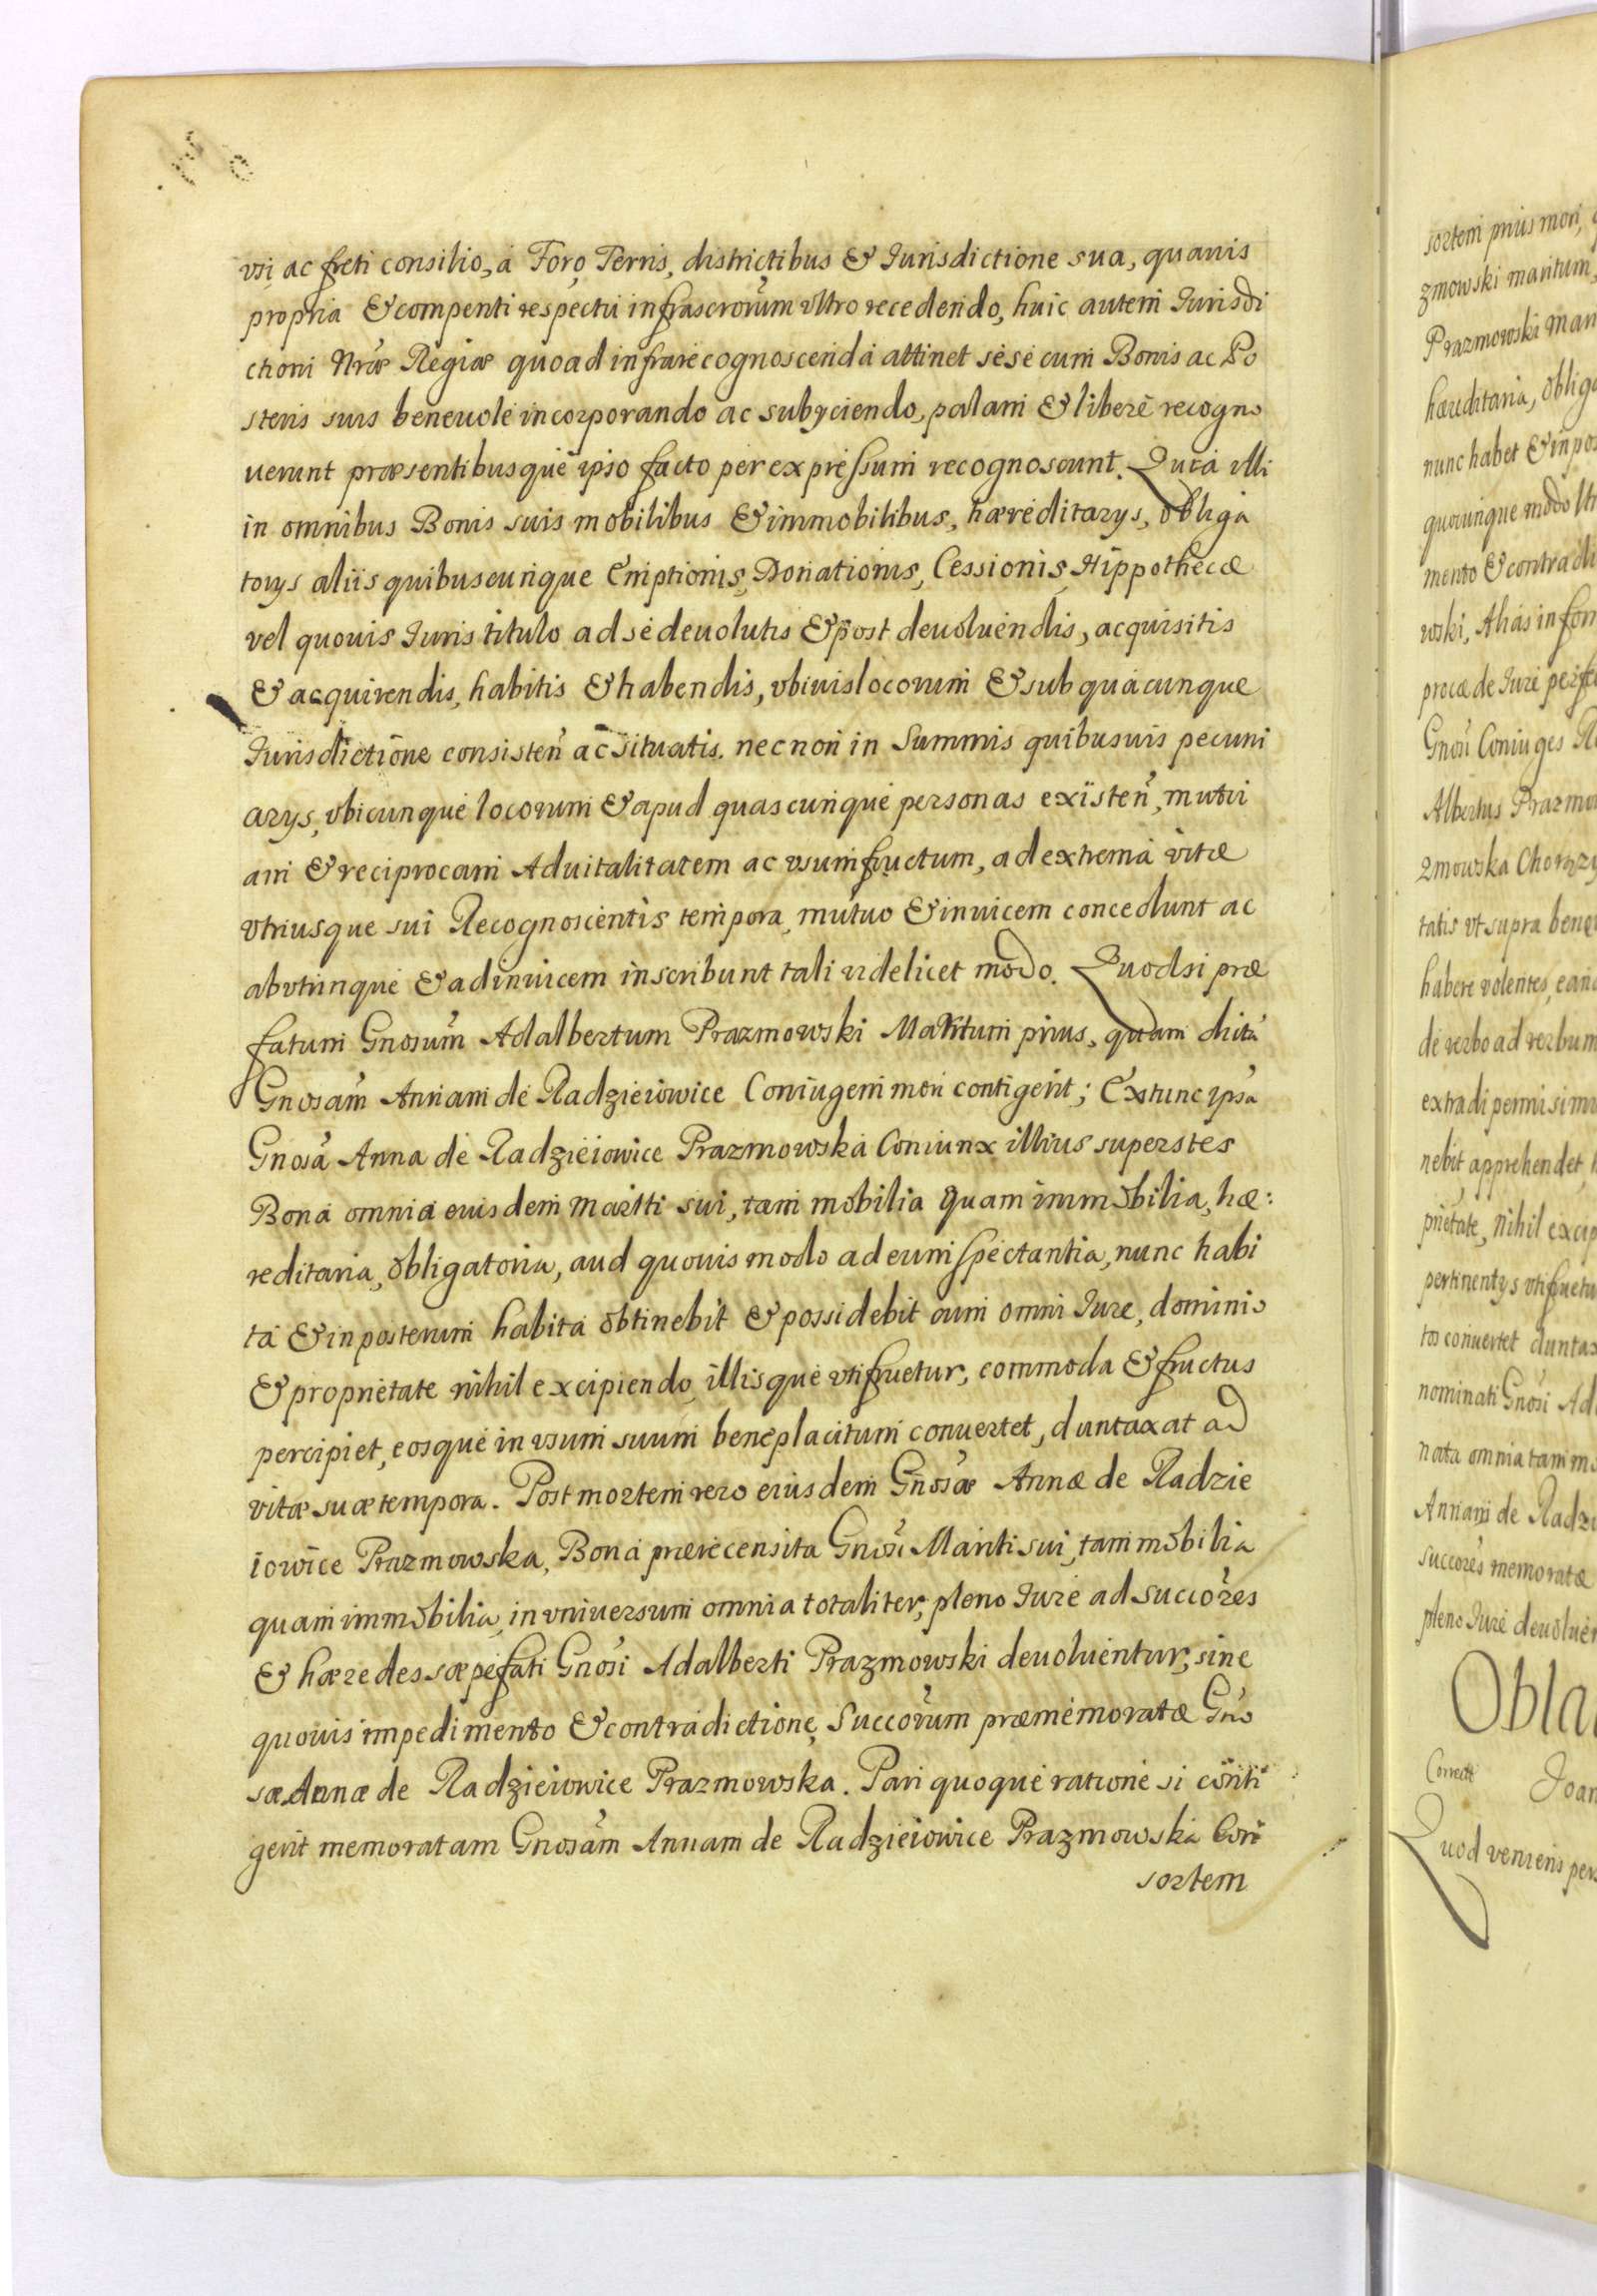 vsi ac freti consilio, à Foro Terris, districtibus & Jurisdictione sua, quauis
propria & compenti respectu infrascrorum vltro recedendo, huic autem Jurisdi
ctioni Nrae Regiae quoad infrarecognoscenda attinet sese cum Bonis ac Po
steris suis beneuolè incorporando ac subyciendo, palam & liberè recogno
uerunt praesentibusque ipso facto per expressum recognoscunt. Quia illi
in omnibus Bonis suis mobilibus & immobilibus, haereditarys, obliga
torys aliis quibuscunque Emptionis, Donationis, Cessionis, Hippothecae
vel quouis Juris titulo ad se deuolutis & post deuoluendis, acquisitis
& acquirendis, habitis & habendis, vbiuis locorum & sub quacunque
Jurisdictione consisten ac situatis. necnon in Summis quibusuis pecuni
arys, vbicunque locorum & apud quascunque personas existen, mutu
am & reciprocam Aduitalitatem ac vsumfructum, ad extrema vitae
vtriusque sui Recognoscentis tempora, mutuo & inuicem concedunt ac
abvtrinque & adinuicem inscribunt tali videlicet modo. Quodsi prae
fatum Gnosum Adalbertum Prazmowski Maritum prius, quam dictā
Gnosam Annam de Radzieiowice Coniugem mori contigerit; Extunc ipsa
Gnosa Anna de Radzieiowice Prazmowska Coniunx illius superstes
Bona omnia euisdem Maritti sui, tam mobilia quam immobilia, hae:
reditaria, obligatoria, aud quouis modo ad eum spectantia, nunc habi
ta & in posterum habita obtinebit & possidebit cum omni Jure, dominio
& proprietate nihil excipiendo illisque vtifruetur, commoda & fructus
percipiet, eosque in vsum suum beneplacitum conuertet, duntaxat ad
vitae suae tempora. Post mortem vero eiusdem Gnosae Annae de Radzie
iowice Prazmowska, Bona praerecensita Gnosi Mariti sui, tam mobilia
quam immobilia, in vniuersum omnia totaliter, pleno Jure ad Succores
& haeredes saepefati Gnosi Adalberti Prazmowski deuoluentur, sine
quouis impedimento & contradictione, Succorum praememoratae Gno
sae Annae de Radzieiowice Prazmowska. Pari quoque ratione si conti
gerit memoratam Gnosam Annam de Radzieiowice Prazmowska Con
sortem
sortem prius mori,
zmowski maritum,
Prazmowski
haereditaria,
nunc habet &
quocunque modo
mento &
wski, Alias in
procae de Jure
Gnosi Coniuges
Albertus
zmowska
tatis vt supra
habere volentes,
de verbo ad verbum
extradi
nebit, apprehendet,
prietate, nihil
pertinentys
tos conuertet
nominati Gnosi
nata omnia tam
Annam de
Succores memoratae
pleno Jure
Correct
Quod veniens